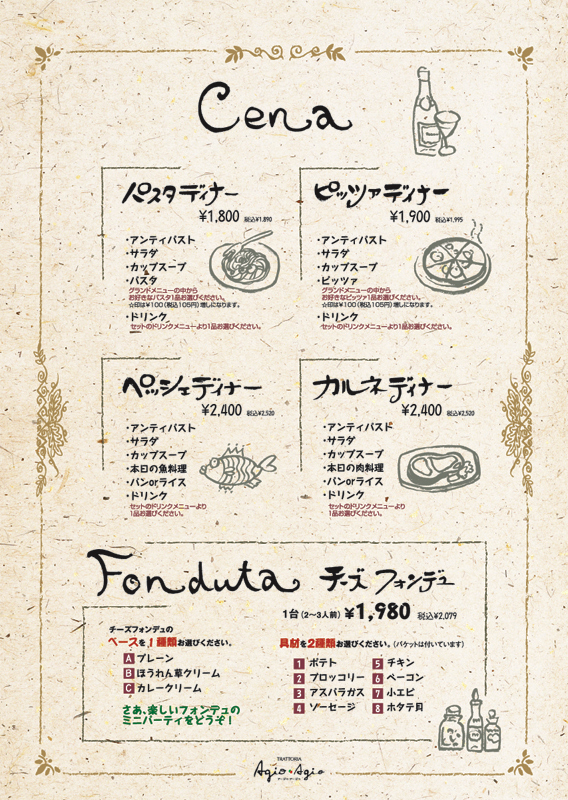 Cena
パスタディナー
¥1,800 税込¥1,890
・アンティパスト
・サラダ
・カップスープ
・パスタ
グランドメニューの中から
お好きなパスタ1品お選びください。
☆印は¥100(税込105円)増しになります。
・ドリンク
セットのドリンクメニューより1品お選びください。
ピッツァディナー
¥1,900 税込¥1,995
・アンティパスト
・サラダ
・カップスープ
・ピッツァ
グランドメニューの中から
お好きなピッツァ1品お選びください。
☆印は¥100(税込105円)増しになります。
・ドリンク
セットのドリンクメニューより1品お選びください。
ペッシェディナー
¥2,400 税込¥2,520
・アンティパスト
・サラダ
・カップスープ
・本日の魚料理
・パンorライス
・ドリンク
セットのドリンクメニューより
1品お選びください。
カルネディナー
¥2,400 税込¥2,520
・アンティパスト
・サラダ
・カップスープ
・本日の肉料理
・パンorライス
・ドリンク
セットのドリンクメニューより
1品お選びください。
Fonduta チーズフォンデュ
1台(2〜3人前) ¥1,980 税込¥2,079
チーズフォンデュの
ベースを1種類お選びください。
A プレーン
B ほうれん草クリーム
C カレークリーム
さあ、楽しいフォンデュの
ミニパーティをどうぞ!
具材を2種類お選びください。(バケットは付いています)
1 ポテト
2 ブロッコリー
3 アスパラガス
4 ソーセージ
5 チキン
6 ベーコン
7 小エビ
8 ホタテ貝
TRATTORIA
Agio Agio